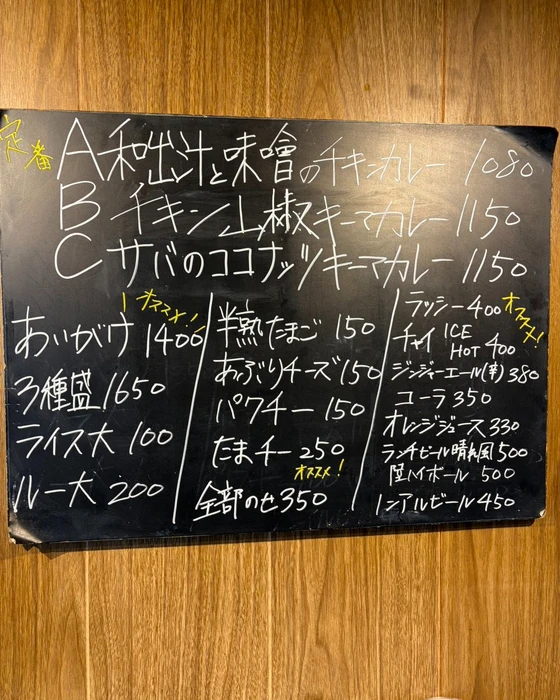 定番
A 和出汁と味噌のチキンカレー 1080
B チキン山椒キーマカレー 1150
C サバのココナッツキーマカレー 1150
オススメ！
あいがけ 1400
3種盛 1650
ライス大 100
ルー大 200
半熟たまご 150
あぶりチーズ 150
パクチー 150
たまチー 250
オススメ！
全部のせ 350
ラッシー 400
オススメ！
チャイ ICE HOT 400
ジンジャーエール(辛) 380
コーラ 350
オレンジジュース 330
ランチビール晴れ風 500
ハイボール 500
ノンアルビール 450